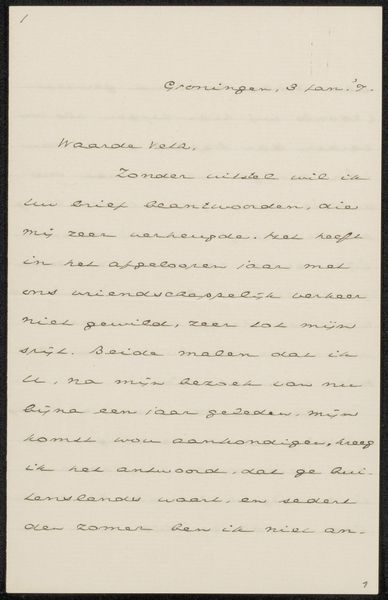 1
Groningen, 3 Jan. '7.
Waarde Veth,
Zonder uitstel wil ik
Uw brief beantwoorden, die
mij zeer verheugde. Het heeft
in het afgeloopen jaar met
ons vriendschappelijk verkeer
niet gewild, zeer tot mijn
spijt. Beide malen dat ik
U, na mijn bezoek van nu
bijna een jaar geleden, mijn
komst wou aankondigen, kreeg
ik het antwoord, dat ge bui-
tenslands waart, en sedert
den zomer ben ik niet an-